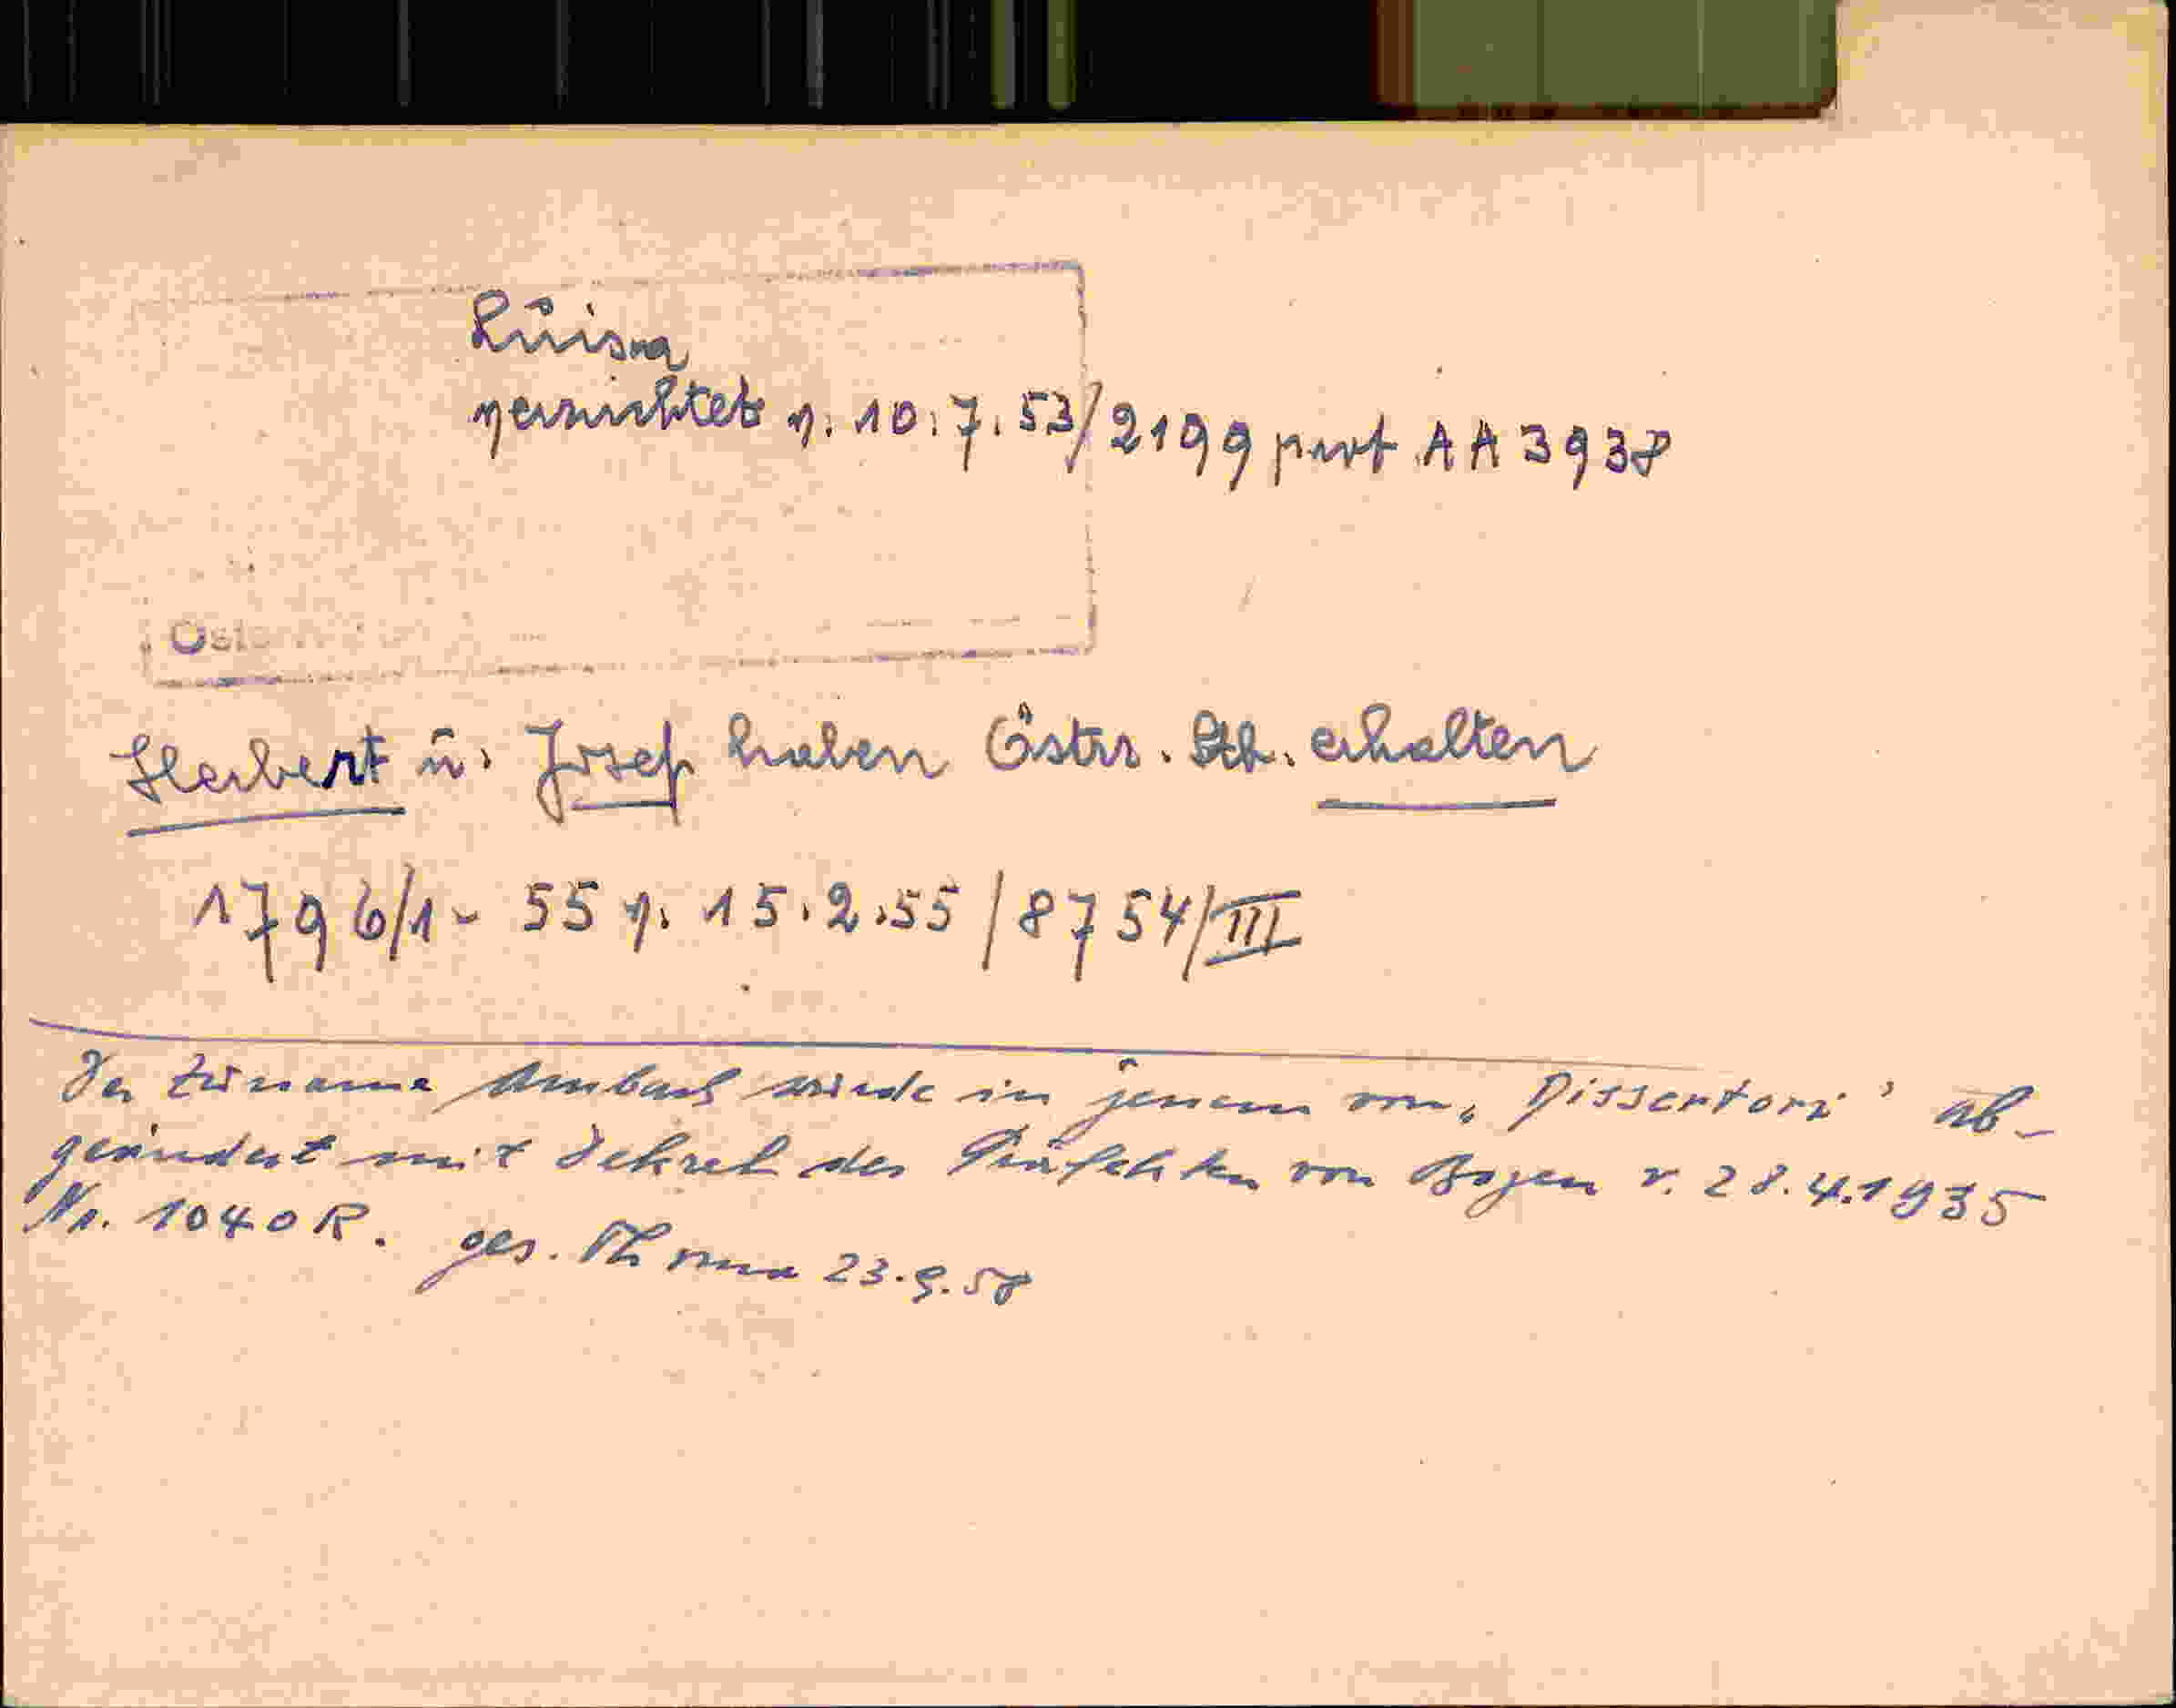 Luisa
verzichtet v. 10.7.53/2199 prot AA 3938
Öst
Herbert u. Josef haben Östrr. Stb. erhalten
1796/1 - 55 v. 15.2.55/8754/III
Der Zuname Ambach wurde in jenem von „Dissertori" ab-
geändert mit Dekret des Präfekten von Bozen v. 28.4.1935
Nr. 1040 R. ges. Thoma 23.9.58